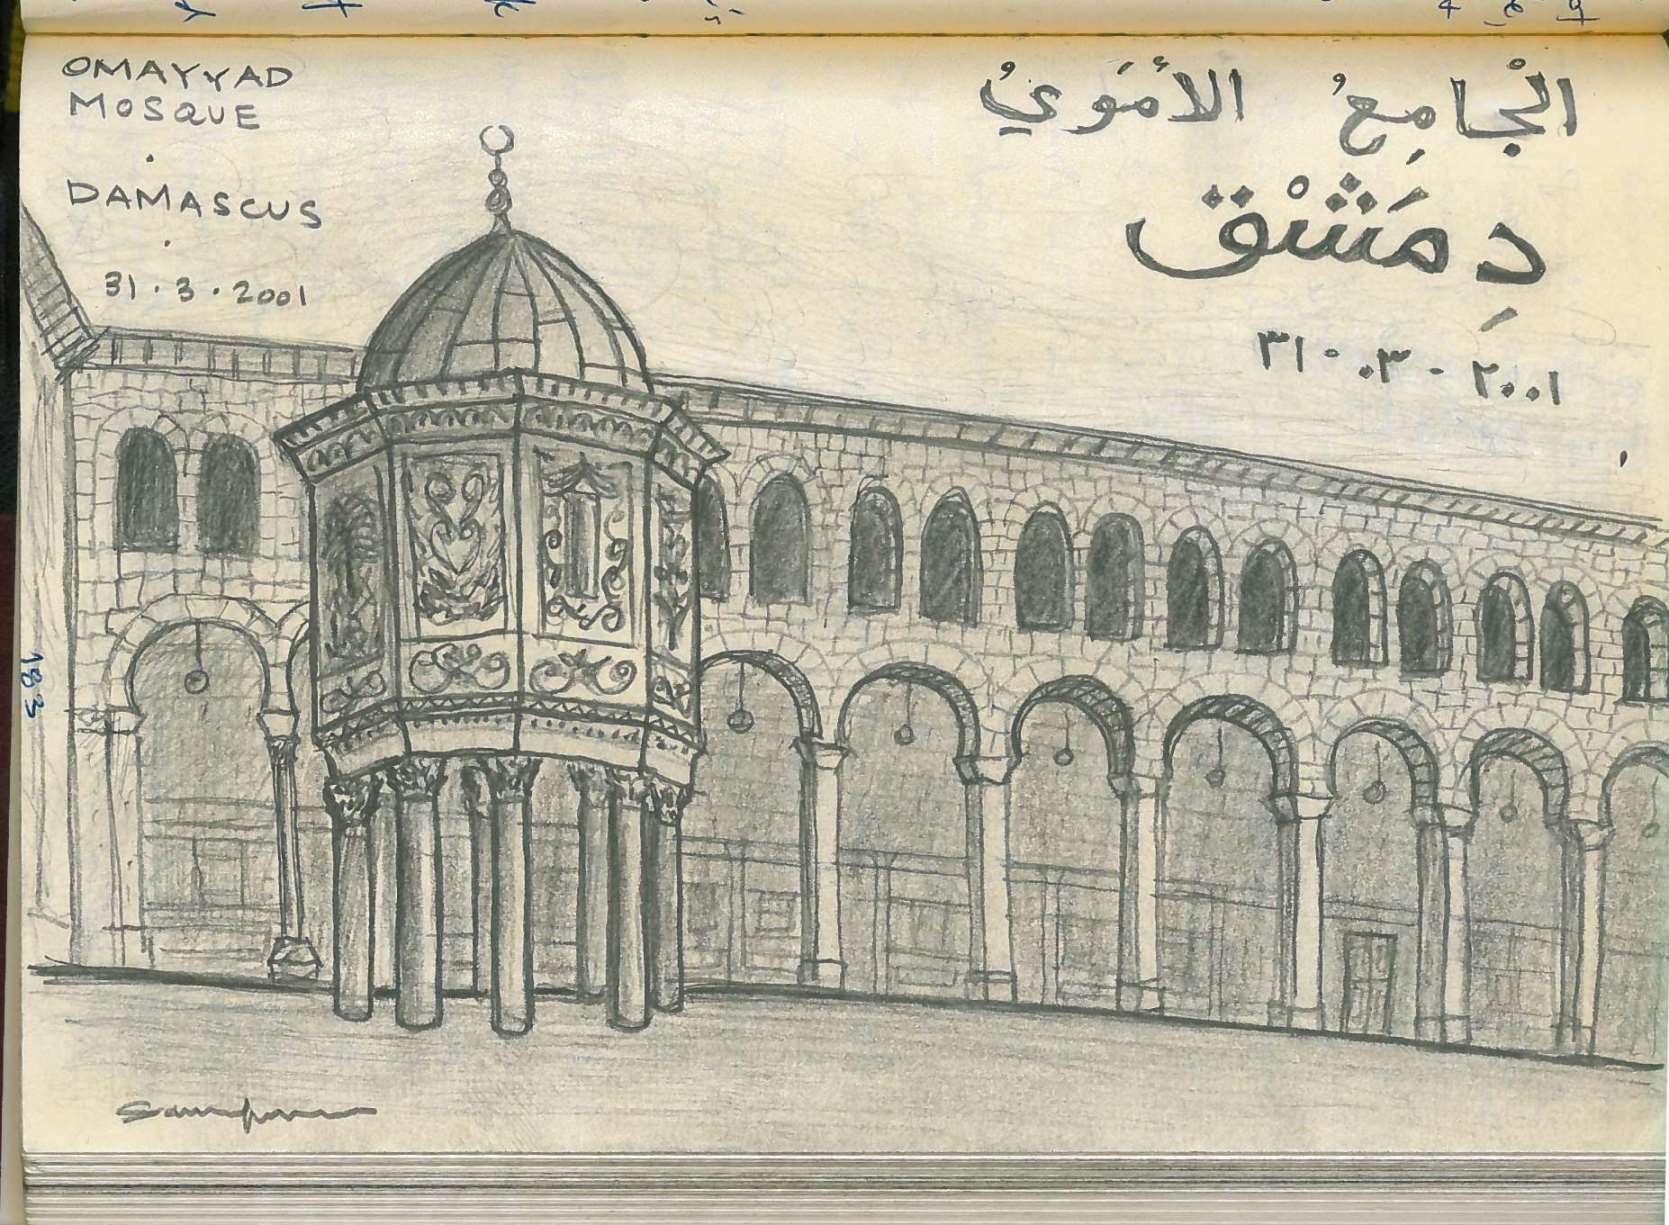 OMAYYAD
MOSQUE
DAMASCUS
31.3.2001
الْجامِعُ الأُمَوَيُ
دِمَشْق
٣١٠٠٣-٢٠٠١
183